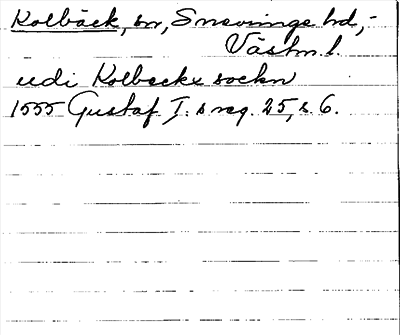 Kolbäck, sn, Snevringe hd,
Västm. l.
udi Kolbecke sockn
1555 Gustaf I:s reg. 25, s. 6.